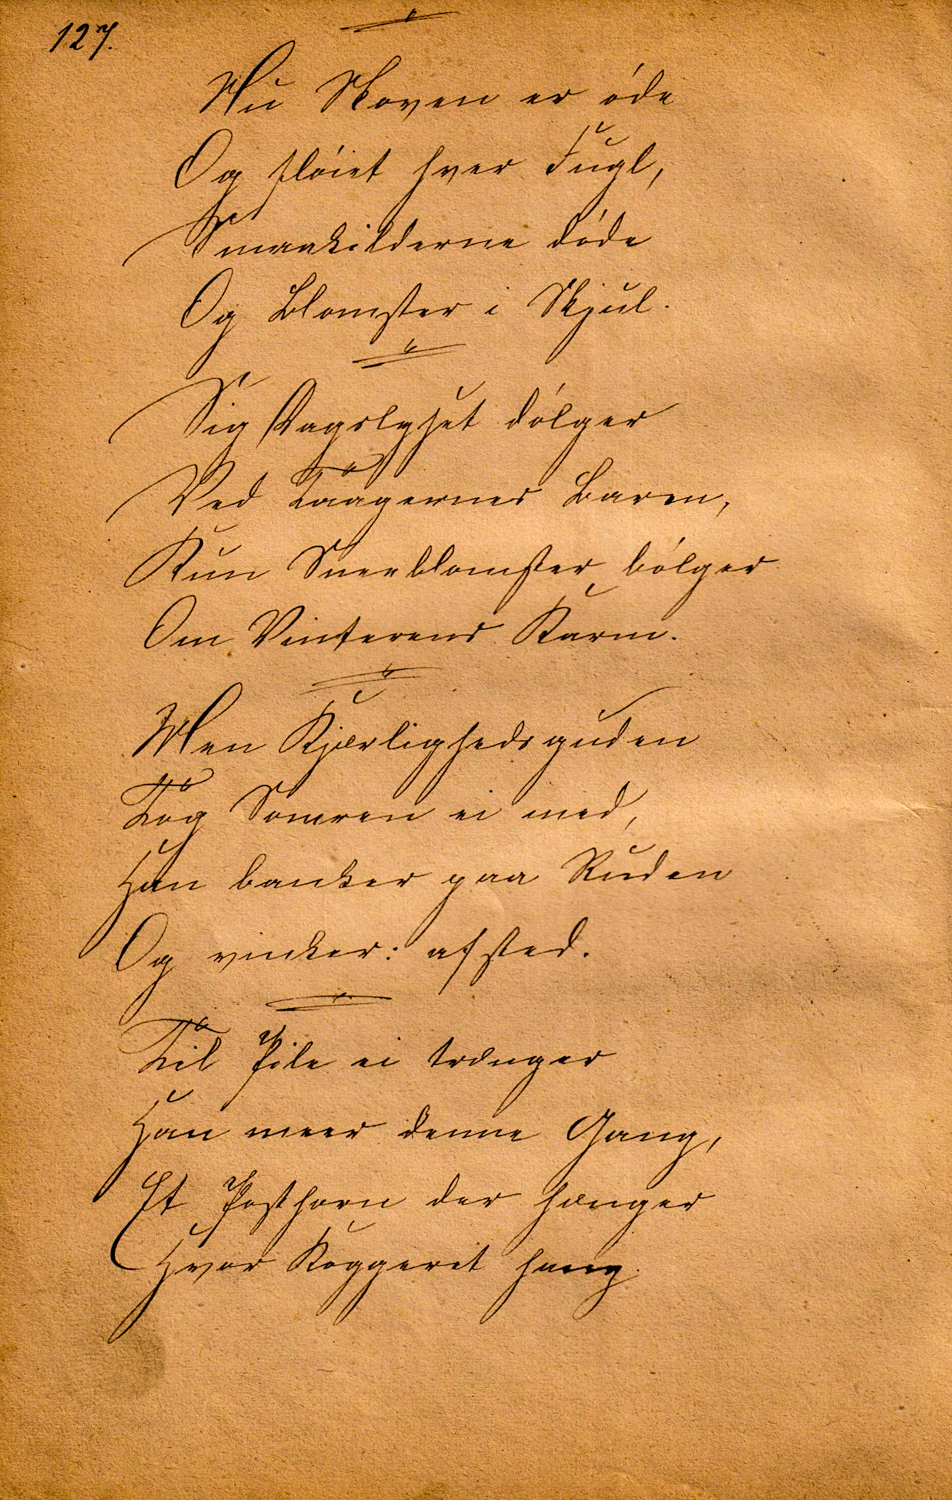 127.
Nu Skoven er óde
Og flóiet hver Fugl,
Smaakilderne dóde
Og Blomster i Skjul.
Sig Dagslyset dólger
Ved Taagernes Barm,
Kun Sneeblomster bólger
Om Vinterens Karm.
Men Kjærlighedsguden
Tog Somren ei med,
Han banker paa Ruden
Og vinker: afsted.
Til Pile ei trænger
Han meer denne Gang,
Et Posthorn der hænger
Hvor Koggeret hang.